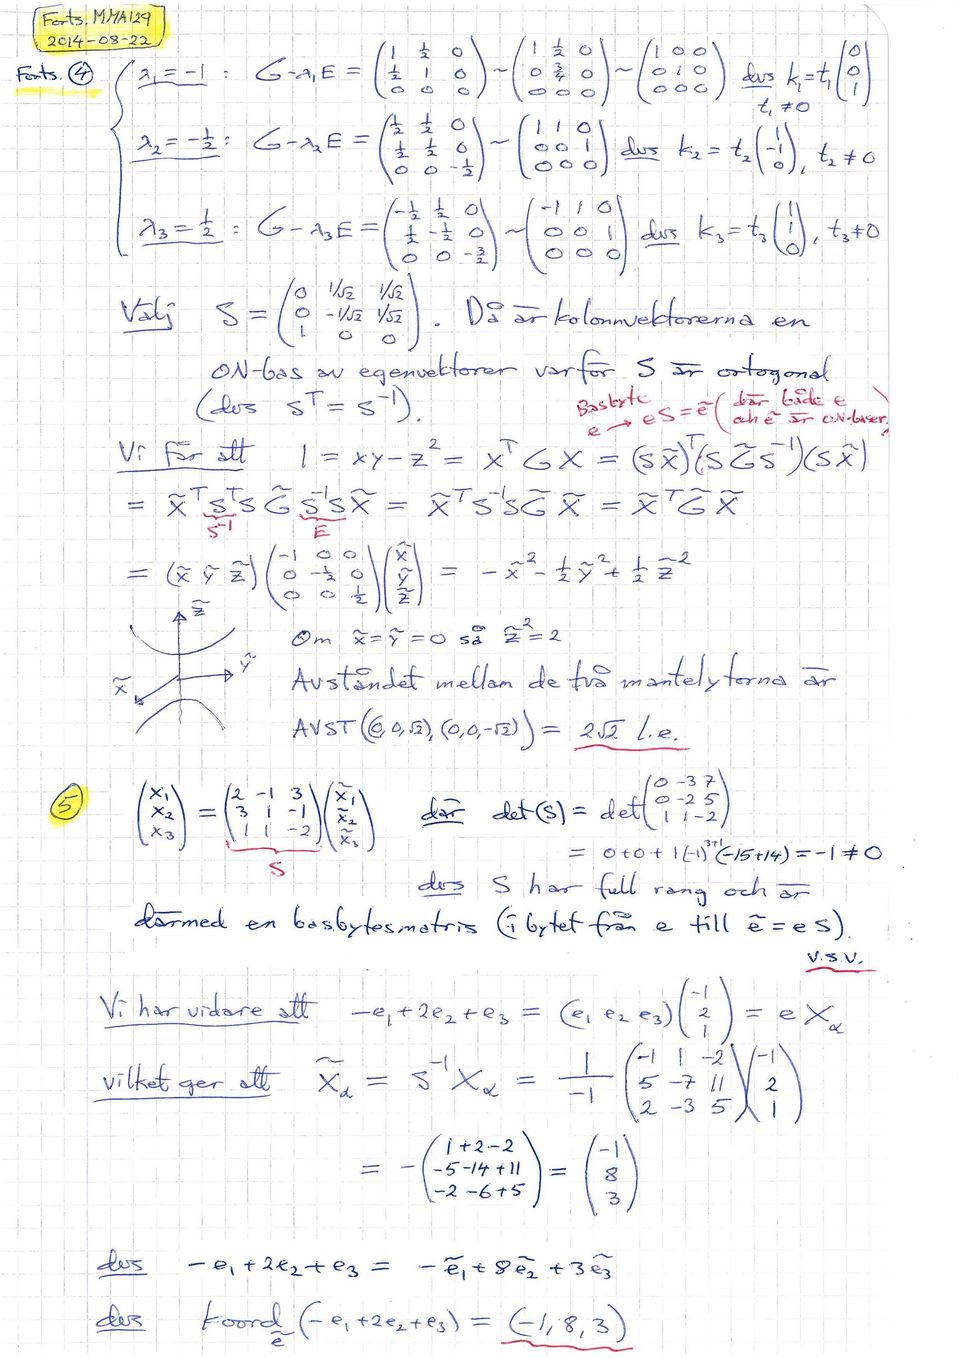 Forts. MMA129
2014-08-22
Forts. ④ { λ₁ = -1 : G-λ₁E = (1 ½ 0; ½ 1 0; 0 0 0) ~ (1 ½ 0; 0 ¾ 0; 0 0 0) ~ (1 0 0; 0 1 0; 0 0 0) dvs k₁ = t₁ (0; 0; 1)
t₁ ≠ 0
λ₂ = -½ : G-λ₂E = (½ ½ 0; ½ ½ 0; 0 0 -½) ~ (1 1 0; 0 0 1; 0 0 0) dvs k₂ = t₂ (1; -1; 0), t₂ ≠ 0
λ₃ = ½ : G-λ₃E = (-½ ½ 0; ½ -½ 0; 0 0 -3/2) ~ (-1 1 0; 0 0 1; 0 0 0) dvs k₃ = t₃ (1; 1; 0), t₃ ≠ 0
Välj S = (0 1/√2 1/√2; 0 -1/√2 1/√2; 1 0 0). Då är kolonnvektorerna en
ON-bas av egenvektorer varför S är ortogonal
(dvs Sᵀ = S⁻¹). Basbyte e → eS = ẽ (där både e och ẽ är ON-baser.)
Vi får att 1 = xy - z² = XᵀGX = (SX̃)ᵀ(SG̃S⁻¹)(SX̃)
= X̃ᵀSᵀSG̃S⁻¹SX̃ = X̃ᵀS⁻¹SG̃X̃ = X̃ᵀG̃X̃
S⁻¹ E
= (x̃ ỹ z̃)(-1 0 0; 0 -½ 0; 0 0 ½)(x̃; ỹ; z̃) = -x̃² - ½ỹ² + ½z̃²
z̃
Om x̃ = ỹ = 0 så z̃² = 2
ỹ
x̃
Avståndet mellan de två mantelytorna är
AVST((0,0,√2), (0,0,-√2)) = 2√2 l.e.
⑤ (x₁; x₂; x₃) = (2 -1 3; 3 1 -1; 1 1 -2)(x̃₁; x̃₂; x̃₃) där det(S) = det(0 -3 7; 0 -2 5; 1 1 -2)
S
= 0+0+1(-1)³⁺¹(-15+14) = -1 ≠ 0
dvs S har full rang och är
därmed en basbytesmatris (i bytet från e till ẽ = eS).
V.S.V.
Vi har vidare att -e₁+2e₂+e₃ = (e₁ e₂ e₃)(-1; 2; 1) = eXα
vilket ger att X̃α = S⁻¹Xα = 1/-1 (-1 1 -2; 5 -7 11; 2 -3 5)(-1; 2; 1)
= -(1+2-2; -5-14+11; -2-6+5) = (-1; 8; 3)
dvs -e₁+2e₂+e₃ = -ẽ₁+8ẽ₂+3ẽ₃
dvs koord ẽ (-e₁+2e₂+e₃) = (-1, 8, 3)